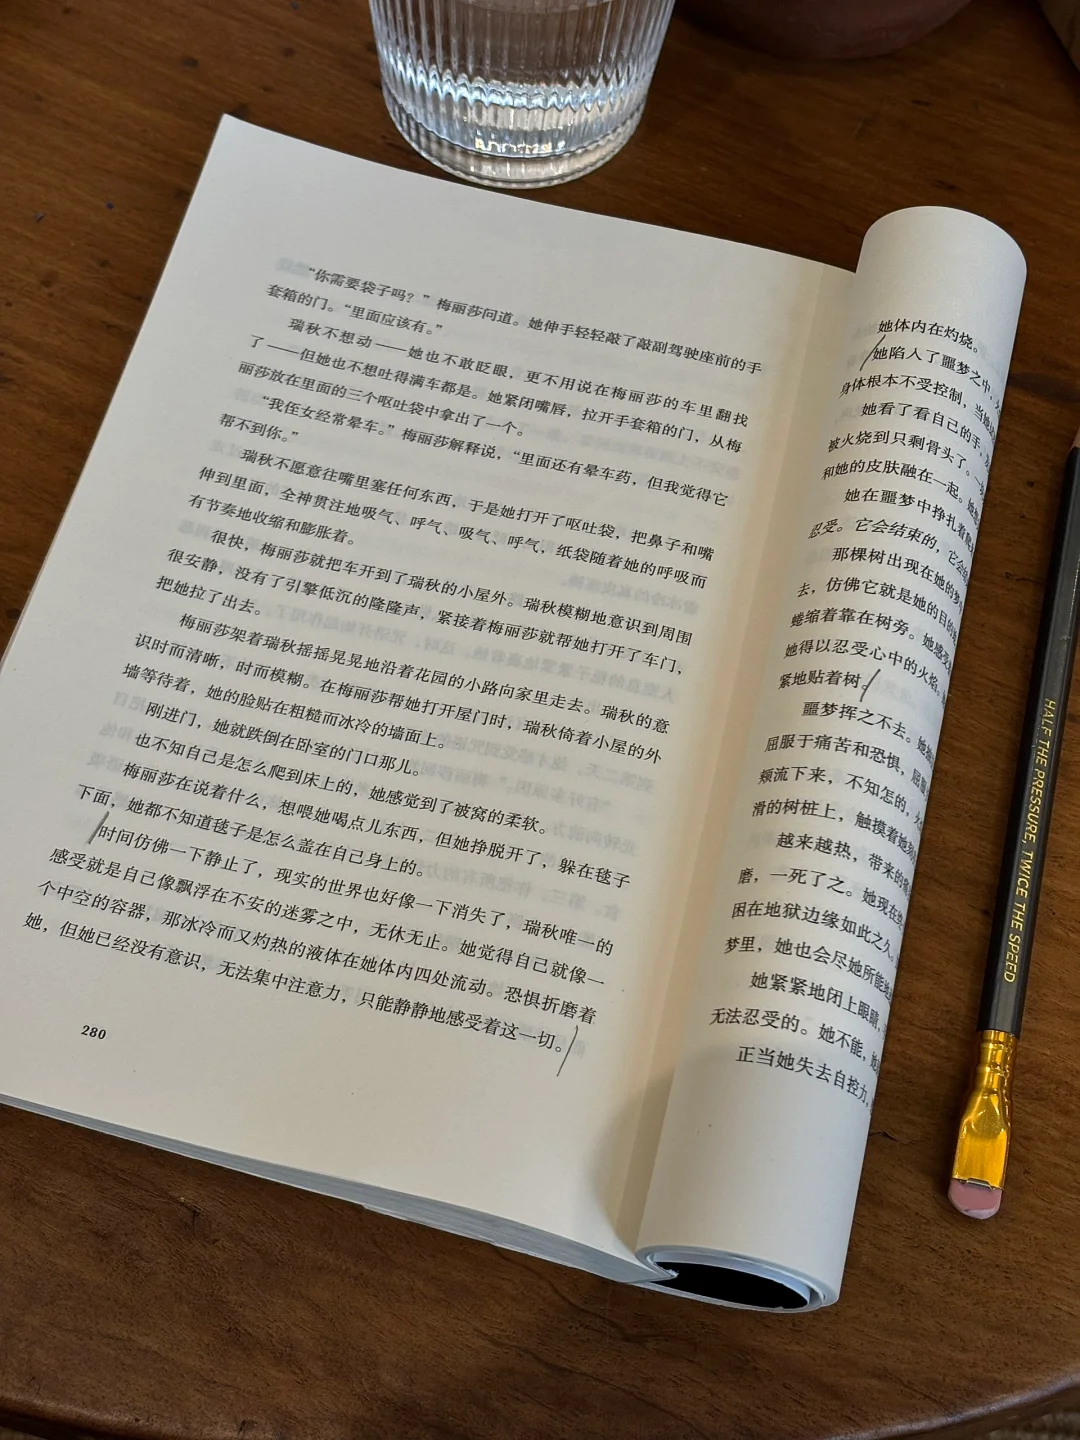 “你需要袋子吗？”梅丽莎问道。她伸手轻轻敲了敲副驾驶座前的手
套箱的门。“里面应该有。”
瑞秋不想动——她也不敢眨眼，更不用说在梅丽莎的车里翻找
了——但她也不想吐得满车都是。她紧闭嘴唇，拉开手套箱的门，从梅
丽莎放在里面的三个呕吐袋中拿出了一个。
“我侄女经常晕车。”梅丽莎解释说，“里面还有晕车药，但我觉得它
帮不到你。”
瑞秋不愿意往嘴里塞任何东西，于是她打开了呕吐袋，把鼻子和嘴
伸到里面，全神贯注地吸气、呼气、吸气、呼气，纸袋随着她的呼吸而
有节奏地收缩和膨胀着。
很快，梅丽莎就把车开到了瑞秋的小屋外。瑞秋模糊地意识到周围
很安静，没有了引擎低沉的隆隆声，紧接着梅丽莎就帮她打开了车门，
把她拉了出去。
梅丽莎架着瑞秋摇摇晃晃地沿着花园的小路向家里走去。瑞秋的意
识时而清晰，时而模糊。在梅丽莎帮她打开屋门时，瑞秋倚着小屋的外
墙等待着，她的脸贴在粗糙而冰冷的墙面上。
刚进门，她就跌倒在卧室的门口那儿。
也不知自己是怎么爬到床上的，她感觉到了被窝的柔软。
梅丽莎在说着什么，想喂她喝点儿东西，但她挣脱开了，躲在毯子
下面，她都不知道毯子是怎么盖在自己身上的。
时间仿佛一下静止了，现实的世界也好像一下消失了，瑞秋唯一的
感受就是自己像飘浮在不安的迷雾之中，无休无止。她觉得自己就像一
个中空的容器，那冰冷而又灼热的液体在她体内四处流动。恐惧折磨着
她，但她已经没有意识，无法集中注意力，只能静静地感受着这一切。
280
她体内在灼烧。
她陷入了噩梦之中，
身体根本不受控制，当她
她看了看自己的手，
被火烧到只剩骨头了。
和她的皮肤融在一起。
她在噩梦中挣扎着
忍受。它会结束的，它会
那棵树出现在她的梦
去，仿佛它就是她的目的
蜷缩着靠在树旁。她感受
她得以忍受心中的火焰。
紧地贴着树。
噩梦挥之不去。
屈服于痛苦和恐惧，屈服
颊流下来，不知怎的，
滑的树桩上，触摸着她
越来越热，带来的
磨，一死了之。她现在
困在地狱边缘如此之久。
梦里，她也会尽她所能
她紧紧地闭上眼睛，
无法忍受的。她不能，她
正当她失去自控力，
HALF THE PRESSURE, TWICE THE SPEED